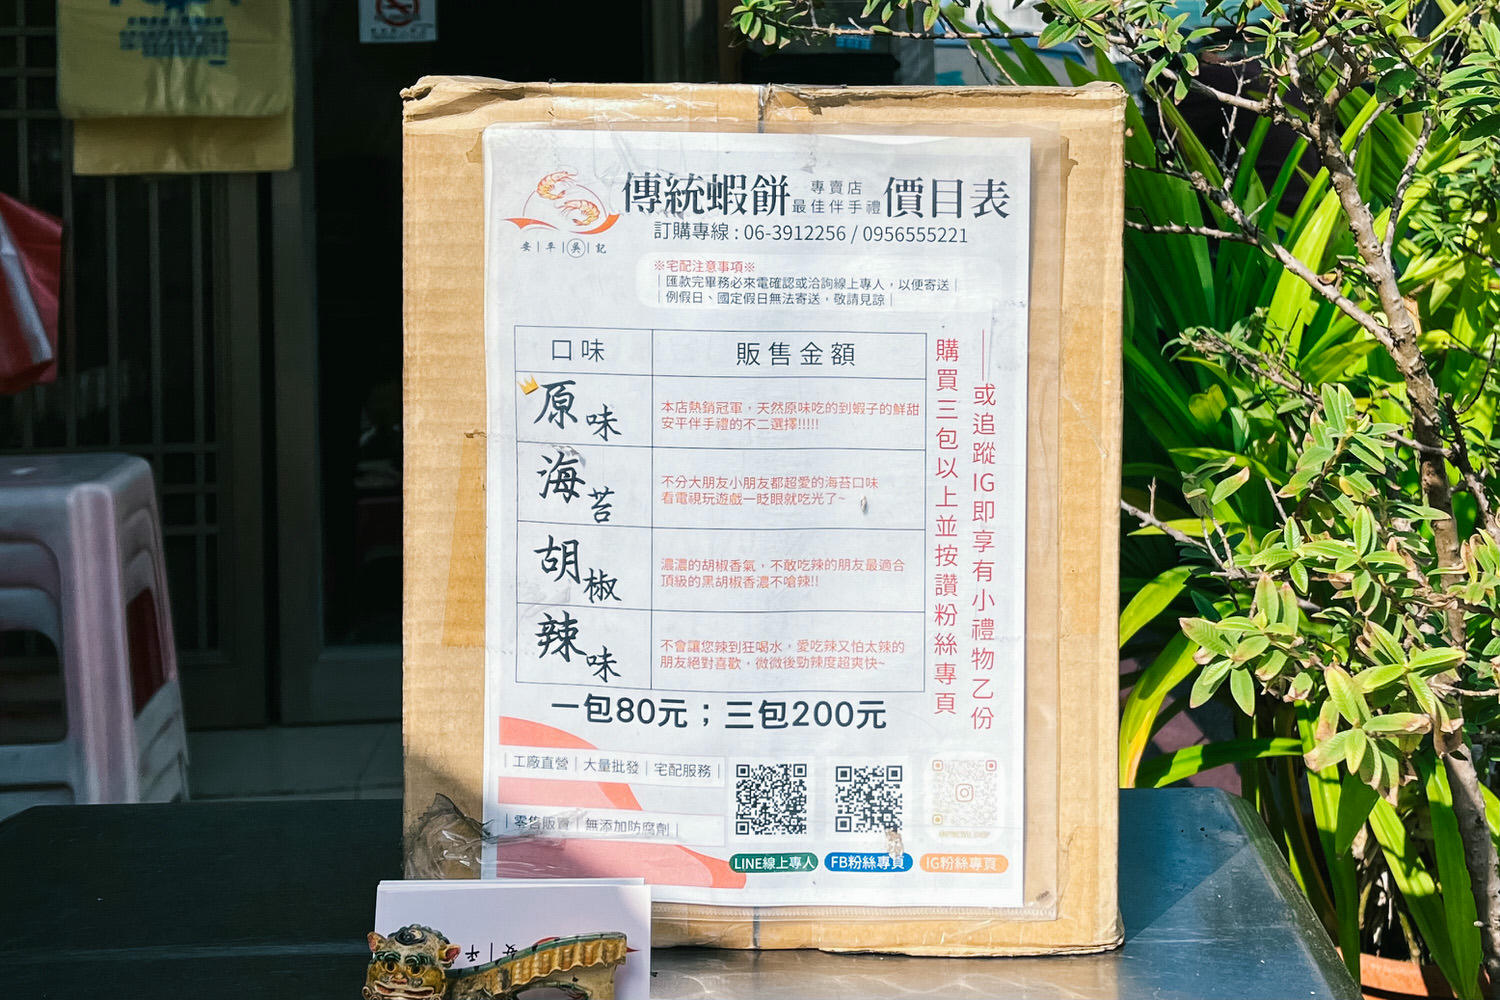 傳統蝦餅 專賣店 最佳伴手禮 價目表
安|平|吳|記
訂購專線 : 06-3912256 / 0956555221
※宅配注意事項※
|匯款完畢務必來電確認或洽詢線上專人，以便寄送|
|例假日、國定假日無法寄送，敬請見諒|
口味 販售金額
原味
本店熱銷冠軍，天然原味吃的到蝦子的鮮甜
安平伴手禮的不二選擇!!!!!
海苔
不分大朋友小朋友都超愛的海苔口味
看電視玩遊戲一眨眼就吃光了~
胡椒
濃濃的胡椒香氣，不敢吃辣的朋友最適合
頂級的黑胡椒香濃不嗆辣!!
辣味
不會讓您辣到狂喝水，愛吃辣又怕太辣的
朋友絕對喜歡，微微後勁辣度超爽快~
購買三包以上並按讚粉絲專頁
——或追蹤IG即享有小禮物乙份
一包80元；三包200元
|工廠直營|大量批發|宅配服務|
|零售販賣|無添加防腐劑|
LINE線上專人
FB粉絲專頁
IG粉絲專頁
安|平